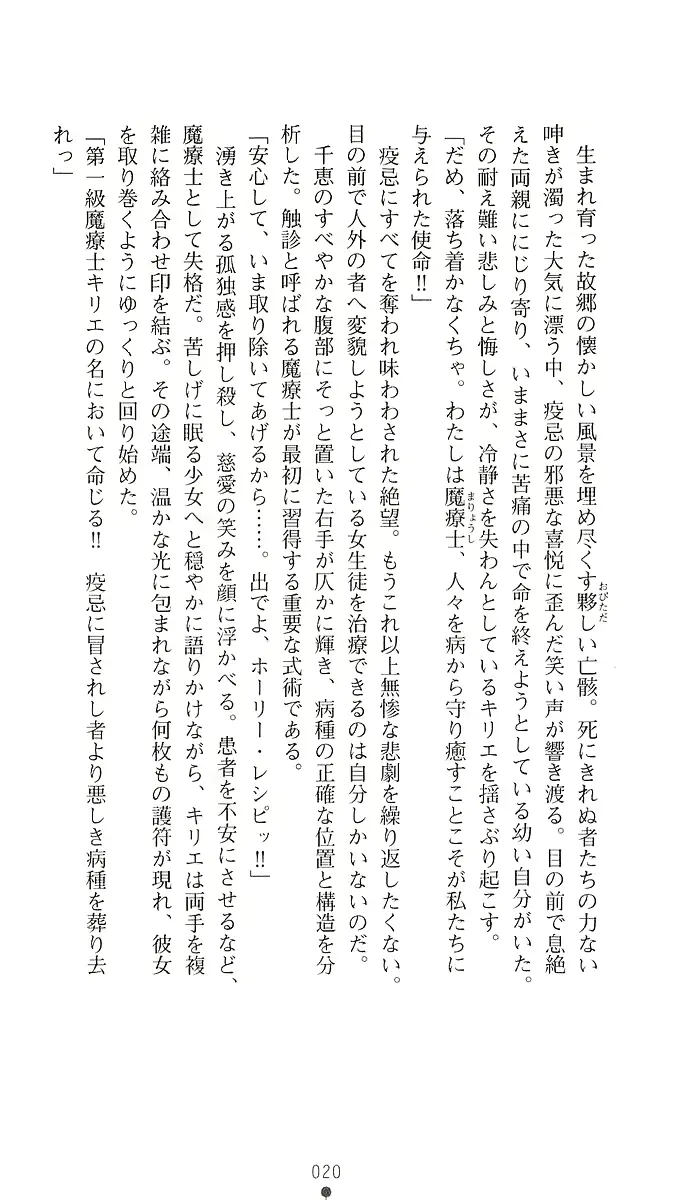 生まれ育った故郷の懐かしい風景を埋め尽くす夥しい亡骸。死にきれぬ者たちの力ない
呻きが濁った大気に漂う中、疫忌の邪悪な喜悦に歪んだ笑い声が響き渡る。目の前で息絶
えた両親ににじり寄り、いままさに苦痛の中で命を終えようとしている幼い自分がいた。
その耐え難い悲しみと悔しさが、冷静さを失わんとしているキリエを揺さぶり起こす。
「だめ、落ち着かなくちゃ。わたしは魔療士、人々を病から守り癒すことこそが私たちに
与えられた使命‼」
疫忌にすべてを奪われ味わわされた絶望。もうこれ以上無惨な悲劇を繰り返したくない。
目の前で人外の者へ変貌しようとしている女生徒を治療できるのは自分しかいないのだ。
千恵のすべやかな腹部にそっと置いた右手が仄かに輝き、病種の正確な位置と構造を分
析した。触診と呼ばれる魔療士が最初に習得する重要な式術である。
「安心して、いま取り除いてあげるから……。出でよ、ホーリー・レシピッ‼」
湧き上がる孤独感を押し殺し、慈愛の笑みを顔に浮かべる。患者を不安にさせるなど、
魔療士として失格だ。苦しげに眠る少女へと穏やかに語りかけながら、キリエは両手を複
雑に絡み合わせ印を結ぶ。その途端、温かな光に包まれながら何枚もの護符が現れ、彼女
を取り巻くようにゆっくりと回り始めた。
「第一級魔療士キリエの名において命じる‼　疫忌に冒されし者より悪しき病種を葬り去
れっ」
おびただ
まりょうし
020